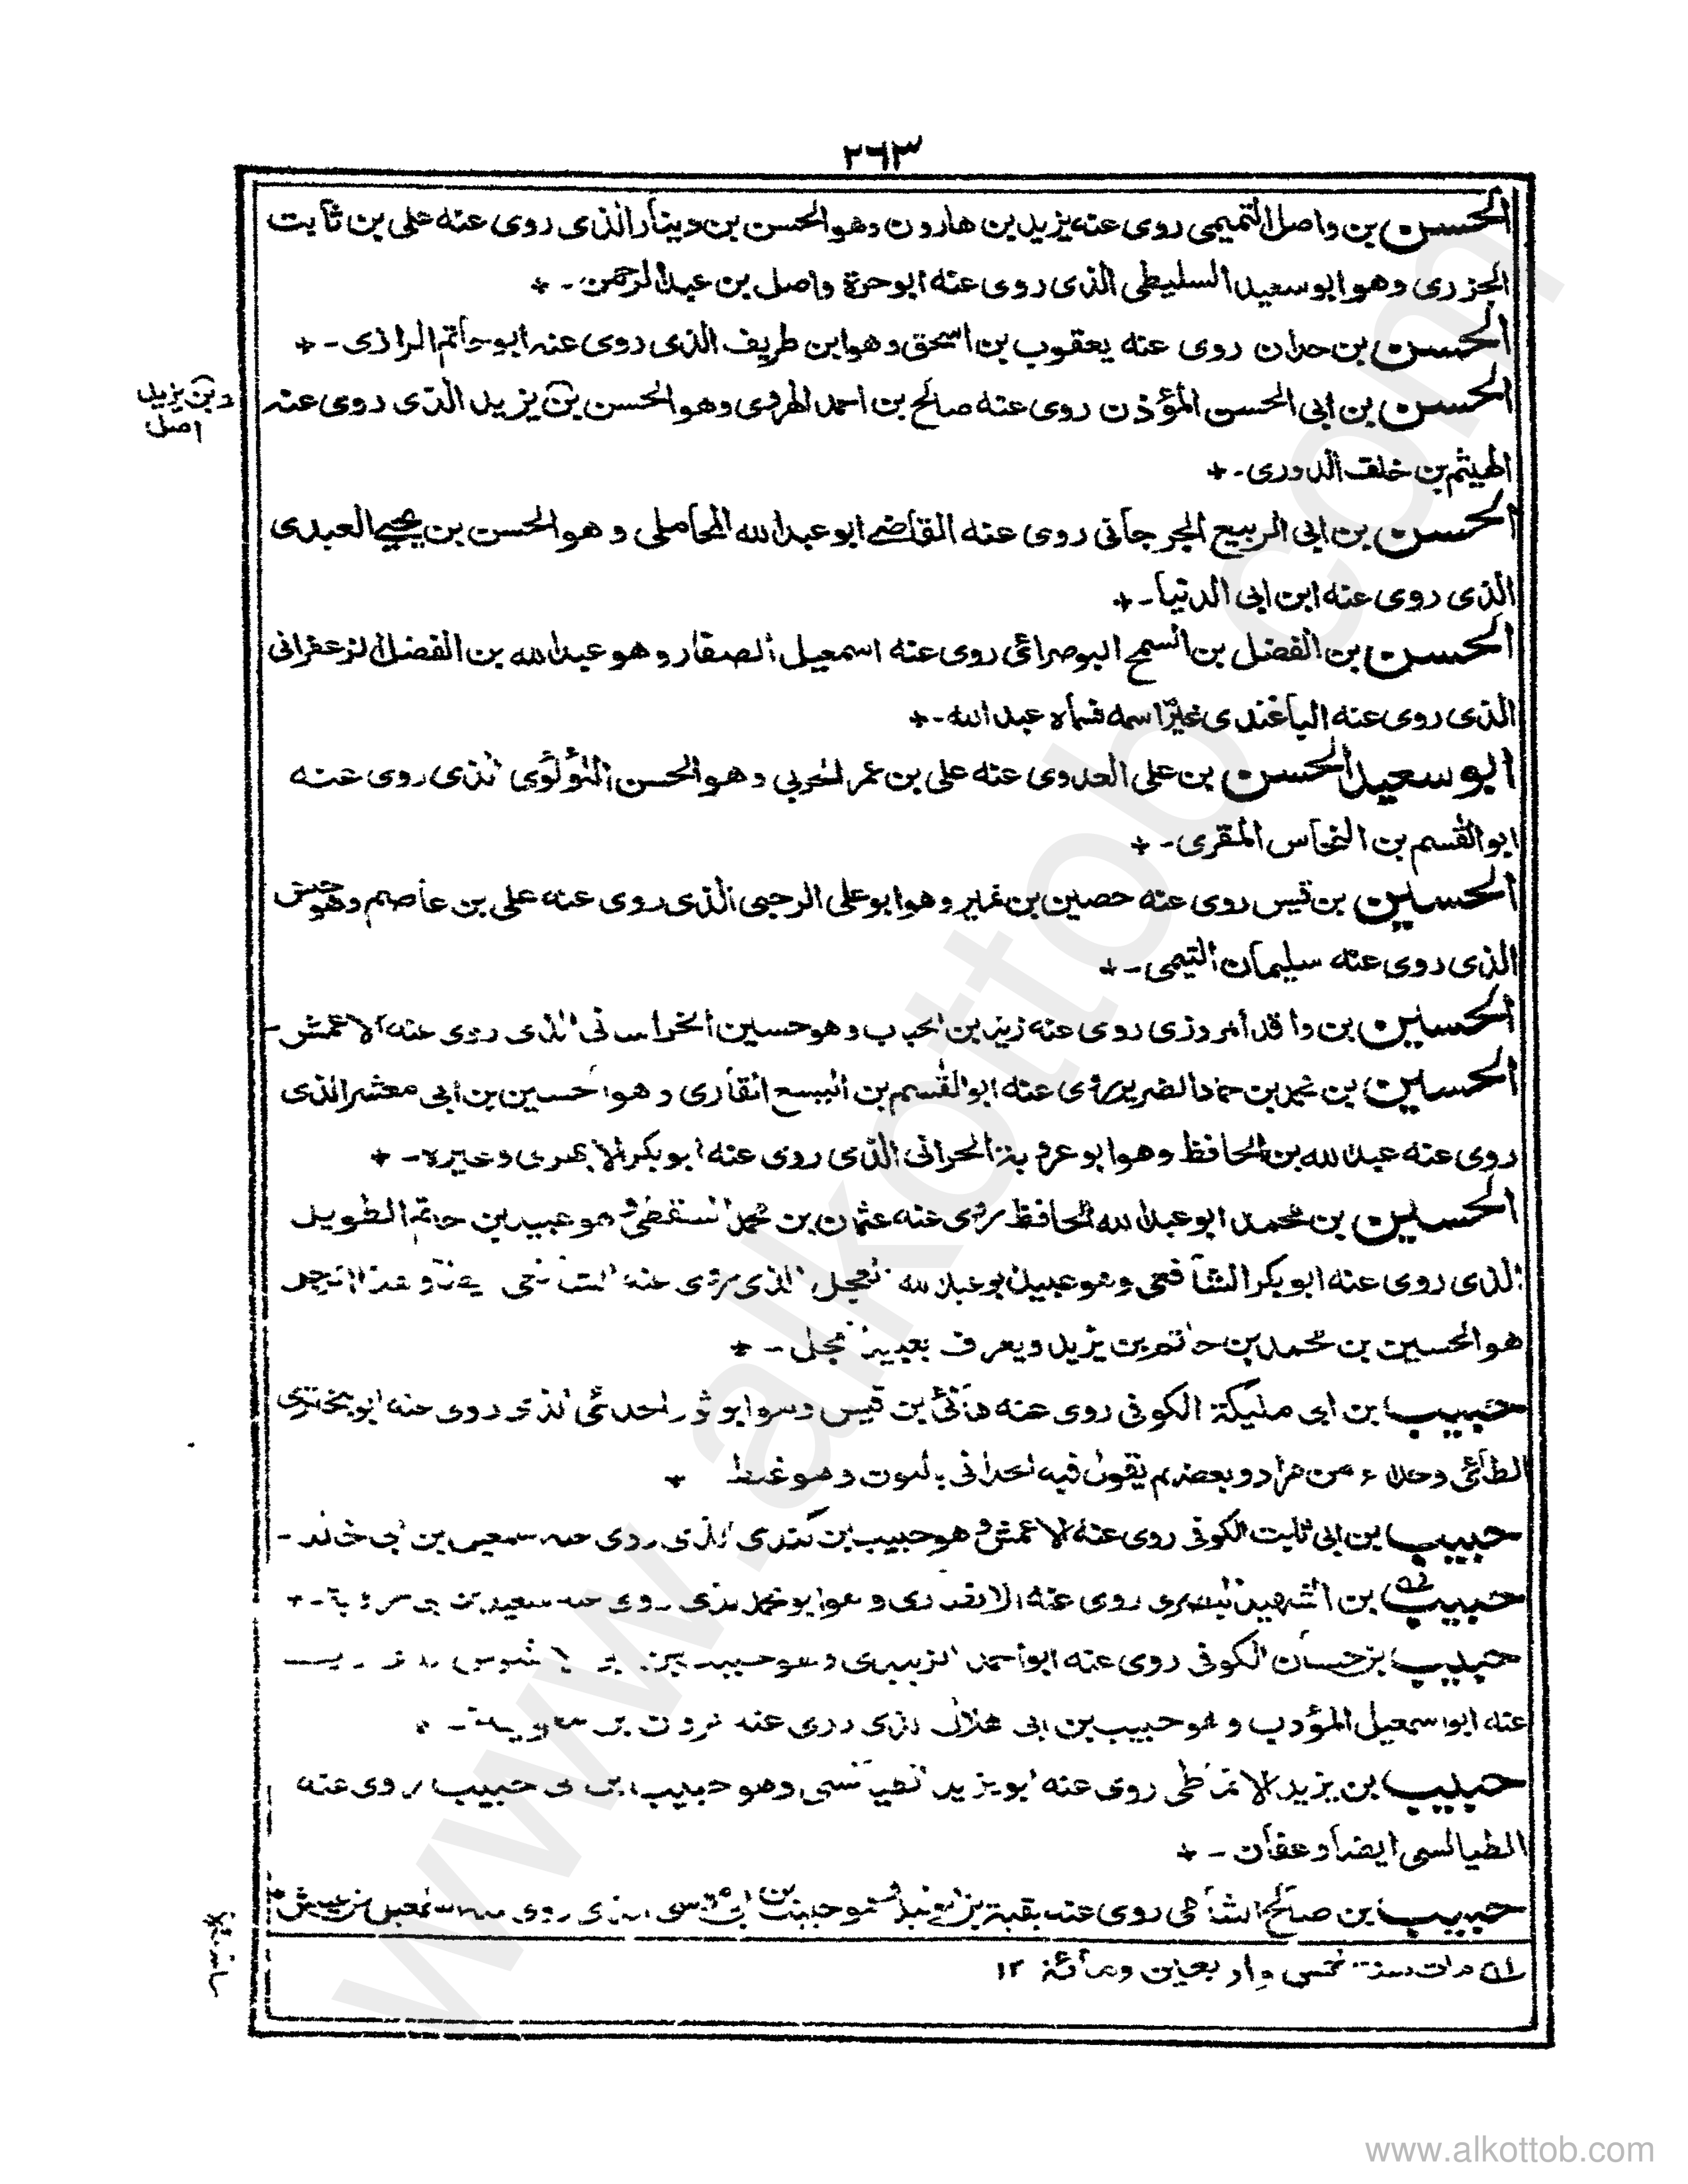 ٢٦٣
الحسن بن واصل التميمى روى عنه يزيد بن هارون وهو الحسن بن دينار الذى روى عنه على بن ثابت
الجزرى وهو ابو سعيد السليطى الذى روى عنه ابو حرة واصل بن عبد الرحمن ـ +
الحسن بن حدان روى عنه يعقوب بن اسحق وهو ابن طريف الذى روى عنه ابو حاتم الرازى ـ +
الحسن بن ابى الحسن المؤذن روى عنه صالح بن احمد الهروى وهو الحسن بن يزيد الذى روى عنه
وبن يزيد
اصل
الهيثم بن خلف الدورى ـ +
الحسن بن ابى الربيع الجرجانى روى عنه القاضے ابو عبد الله المحاملى وهو الحسن بن يحيے العبدى
الذى روى عنه ابن ابى الدنيا ـ +
الحسن بن الفضل بن السمح البوصرائى روى عنه اسمعيل الصفار وهو عبد الله بن الفضل الزعفرانى
الذى روى عنه الباغندى غيّر اسمه فسماه عبد الله ـ +
ابو سعيد الحسن بن على العدوى عنه على بن عمر الحربي وهو الحسن اللؤلؤى الذى روى عنه
ابو القسم بن النخاس المقرى ـ +
الحسين بن قيس روى عنه حصين بن نمير وهو ابو على الرحبى الذى روى عنه على بن عاصم وهو حنش
الذى روى عنه سليمان التيمى ـ +
الحسين بن واقد المروزى روى عنه زيد بن الحباب وهو حسين الخراسانى الذى روى عنه الاعمش ـ
الحسين بن نمير بن حماد الضرير روى عنه ابو القسم بن اليسع القارى وهو الحسين بن ابى معشر الذى
روى عنه عبد الله بن الحافظ وهو ابو عروبة الحرانى الذى روى عنه ابو بكر الابهرى وغيره ـ +
الحسين بن محمد ابو عبد الله الحافظ روى عنه عثمان بن محمد السقطى وهو عبيد بن حاتم الطويل
الذى روى عنه ابو بكر الشافعى وهو عبيد ابو عبد الله العجل الذى روى عنه الشافعى وهذا العجل
هو الحسين بن محمد بن حاتم بن يزيد ويعرف بعبيد العجل ـ +
حبيب بن ابى مليكة الكوفى روى عنه هانئ بن قيس وهو ابو ثور الحدائى الذى روى عنه ابو البخترى
الطائى وحداء من مراد وبعضهم يقول فيه الحدانى بالنون وهو غلط +
حبيب بن ابى ثابت الكوفى روى عنه الاعمش وهو حبيب بن الكندى الذى روى عنه اسمعيل بن ابى خالد ـ
حبيب بن الشهيد البصرى روى عنه الانصارى وهو ابو محمد الذى روى عنه سعيد بن ابى عروبة ـ +
حبيب بن حسان الكوفى روى عنه ابو احمد الزبيرى وهو حبيب بن ابى الاشرس الذى روى
عنه ابو اسمعيل المؤدب وهو حبيب بن ابى هلال الذى روى عنه مروان بن معاوية ـ
حبيب بن يزيد الانماطى روى عنه ابو يزيد الطيالسى وهو حبيب بن ابى حبيب روى عنه
الطيالسى ايضا وعفان ـ +
حبيب بن صالح الشامى روى عنه بقية بن الوليد وهو حبيب بن ابى موسى الذى روى عنه اسمعيل بن عياش
(١) مات سنة خمس واربعين ومائة ١٢
www.alkottob.com
www.alkottob.com